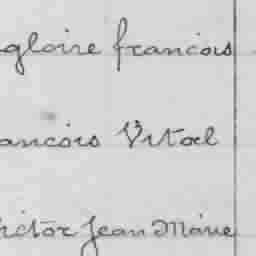 gloire francois
ancois Vital
victor Jean Marie